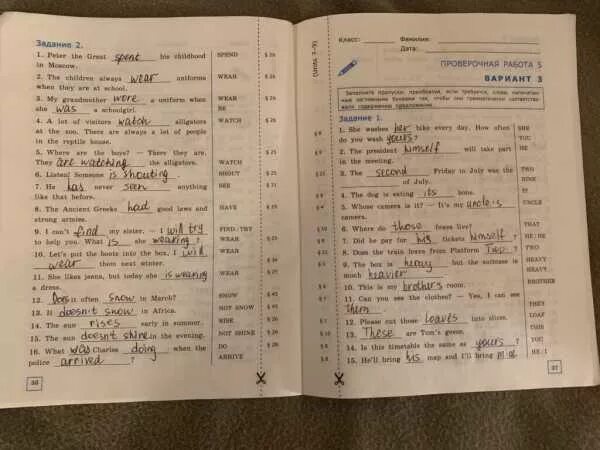 Задание 2.
1. Peter the Great spent his childhood SPEND § 26
in Moscow.
2. The children always wear uniforms WEAR § 26
when they are at school.
3. My grandmother wore a uniform when WEAR
she was a schoolgirl. BE
4. A lot of visitors watch alligators WATCH § 26
at the zoo. There are always a lot of people
in the reptile house.
5. Where are the boys? — They are.
They are watching the alligators. WATCH
6. Listen! Someone is shouting. SHOUT § 25
7. He has never seen anything SEE § 31
like that before.
8. The Ancient Greeks had good laws and HAVE
strong armies.
9. I can't find my sister. — I will try FIND / TRY
to help you. What is she wearing? WEAR § 25
10. Let's put the boots into the box, I will WEAR
wear them next winter.
11. She likes jeans, but today she is wearing WEAR § 25
a dress.
12. Does it often snow in March? SNOW
13. It doesn't snow in Africa. NOT SNOW
14. The sun rises early in summer. RISE § 26
15. The sun doesn't shine in the evening. NOT SHINE § 26
16. What was Charles doing when the DO
police arrived? ARRIVE
(Units 7–9)
Класс: Фамилия:
Дата:
ПРОВЕРОЧНАЯ РАБОТА 5
ВАРИАНТ 3
Заполните пропуски, преобразуя, если требуется, слова, напечатан-
ные заглавными буквами так, чтобы они грамматически соответство-
вали содержанию предложений.
Задание 1.
1. She washes her bike every day. How often SHE
do you wash yours? YOU
2. The president himself will take part HE
in the meeting.
3. The second Friday in July was the TWO
of July. NINE
4. The dog is eating its bone. IT
5. Whose camera is it? — It's my uncle's UNCLE
camera.
6. Where do those foxes live? THAT
7. Did he pay for his tickets himself? HE / HE
8. Does the train leave from Platform Two? TWO
9. The box is heavy but the suitcase is HEAVY
much heavier. HEAVY
10. This is my brother's room. BROTHER
11. Can you see the clothes? — Yes, I can see
them. THEY
12. Please cut those loaves into slices. LOAF
13. These are Tom's geese. THIS
14. Is this timetable the same as yours? YOU
15. He'll bring his map and I'll bring mine HE / I